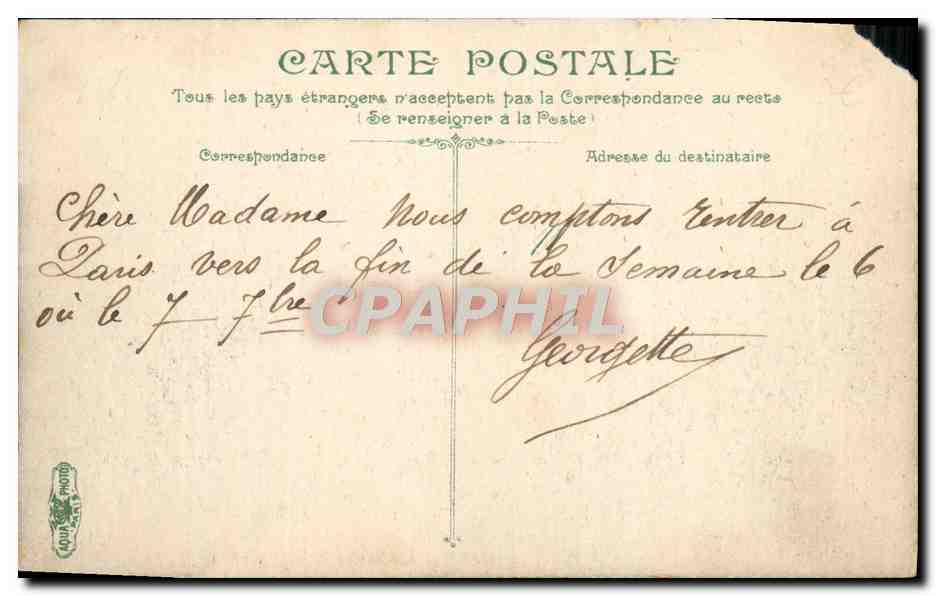 CARTE POSTALE
Tous les pays étrangers n'acceptent pas la Correspondance au recto
(Se renseigner à la Poste)
Correspondance
Adresse du destinataire
Chère Madame Nous comptons rentrer à
Paris vers la fin de la Semaine le 6
où le 7 7bre
CPAPHIL
Georgette
AQUA PHOTO
PARIS